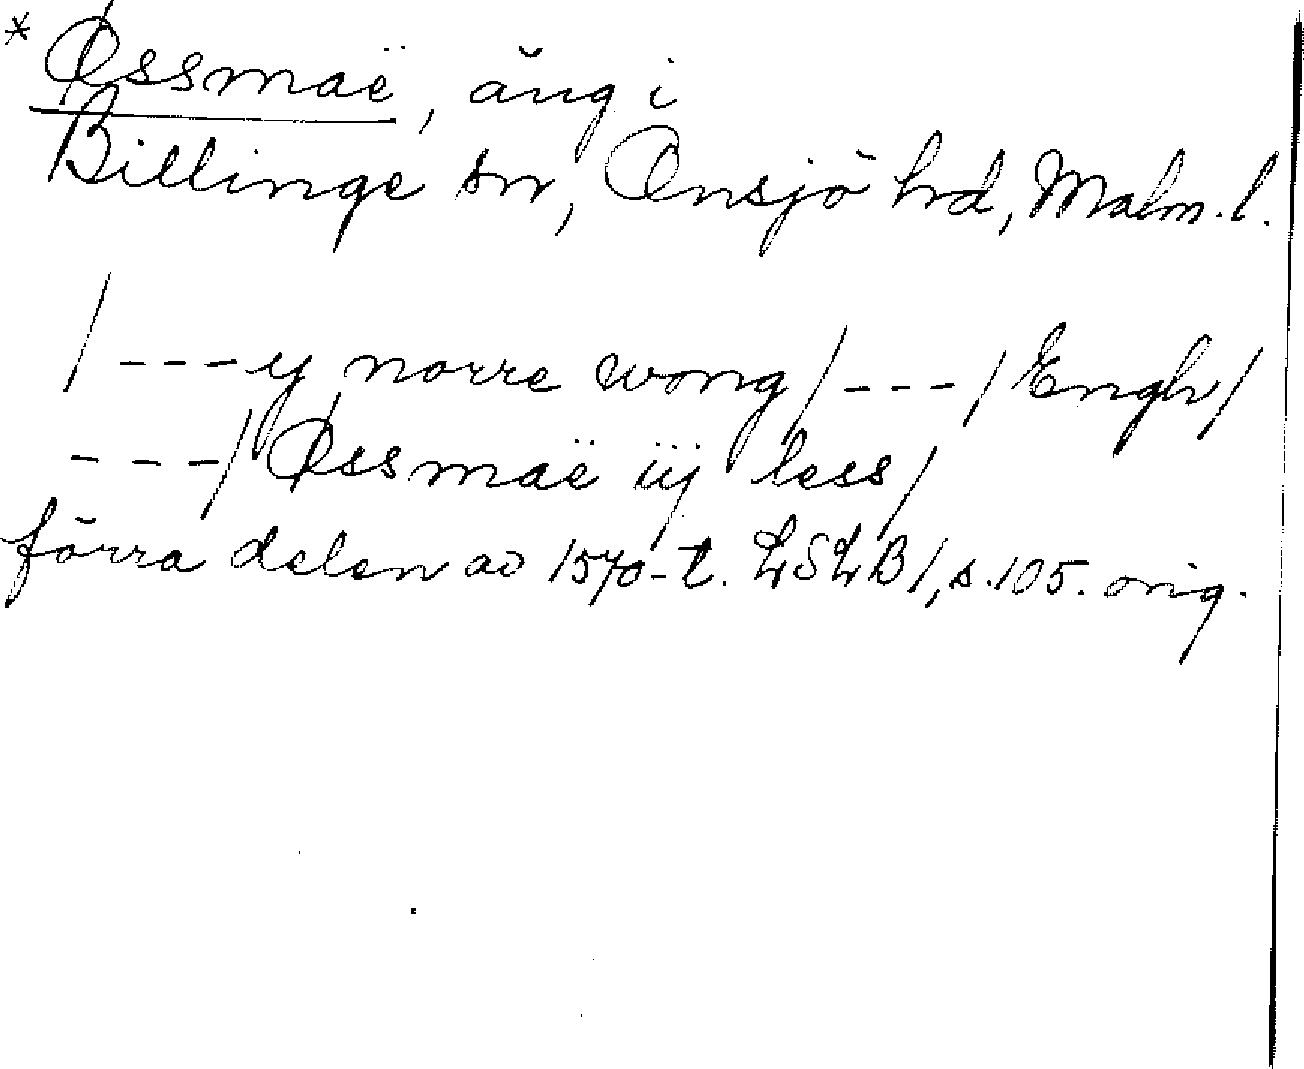 * Øssmaë, äng i
Billinge sn, Onsjö hd, Malm. l.
/---y norre wong/---/Engh/
---/Øssmaë iij less/
förra delen av 1570-t. LSLB 1, s. 105. orig.